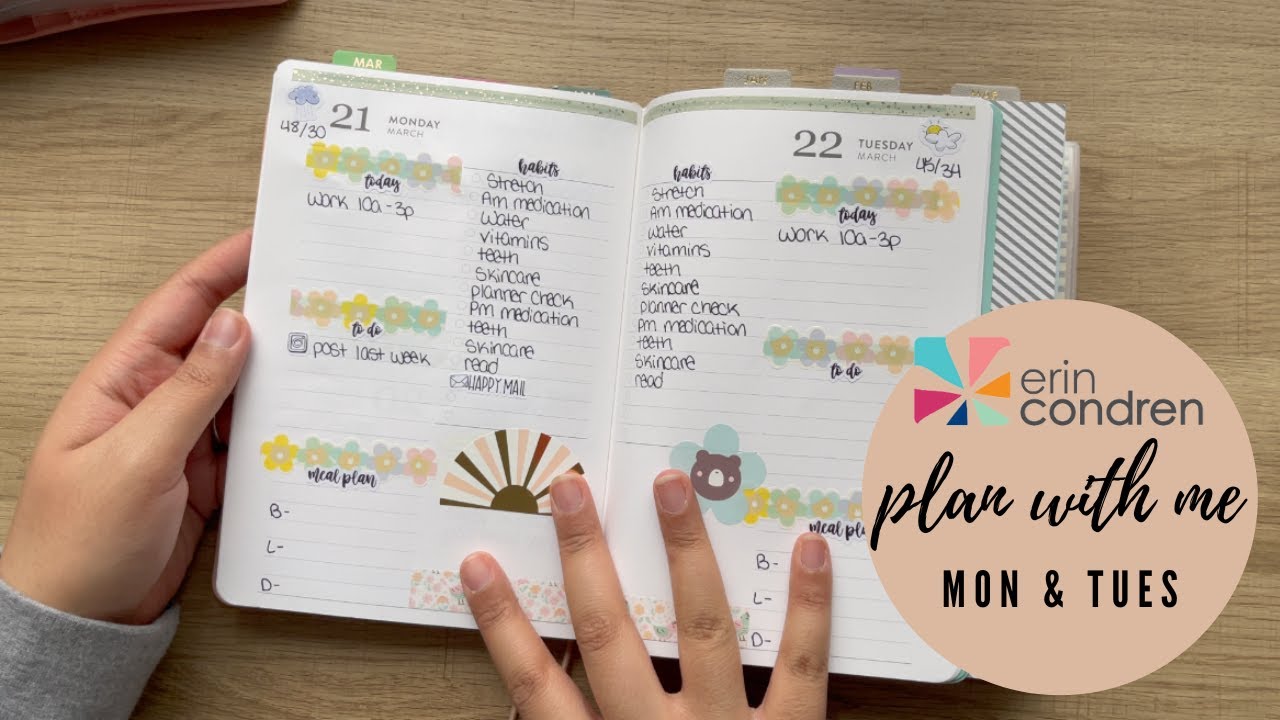 MAR
21 MONDAY
MARCH
48/30
today
work 10a-3p
to do
post last week
meal plan
B-
L-
D-
habits
Stretch
Am medication
water
vitamins
teeth
Skincare
planner check
Pm medication
teeth
Skincare
read
HAPPY MAIL
JAN
FEB
22 TUESDAY
MARCH
45/34
habits
Stretch
Am medication
water
vitamins
teeth
skincare
planner check
pm medication
teeth
skincare
read
today
work 10a-3p
to do
meal pla
B-
L-
D-
erin
condren
plan with me
MON & TUES